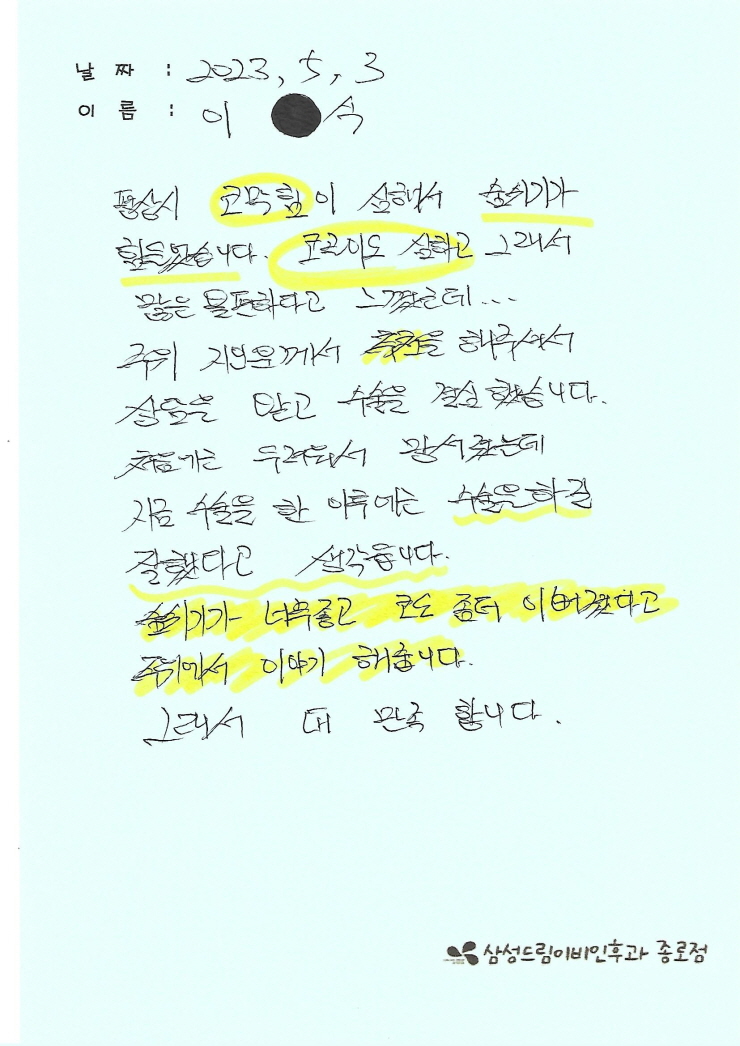 날 짜 : 2023, 5, 3
이 름 : 이 식
평상시 코막힘이 심해서 숨쉬기가
힘들었습니다. 코골이도 심하고 그래서
많은 불편하다고 느꼈는데...
주위 지인분께서 추천을 해주셔서
상담을 받고 수술을 결심했습니다.
처음에는 두려워서 망설였는데
지금 수술을 한 이후에는 수술을하길
잘했다고 생각듭니다.
숨쉬기가 너무좋고 코도 좀더 이뻐졌다고
주위에서 이야기 해줍니다.
그래서 더 만족 합니다.
삼성드림이비인후과 종로점